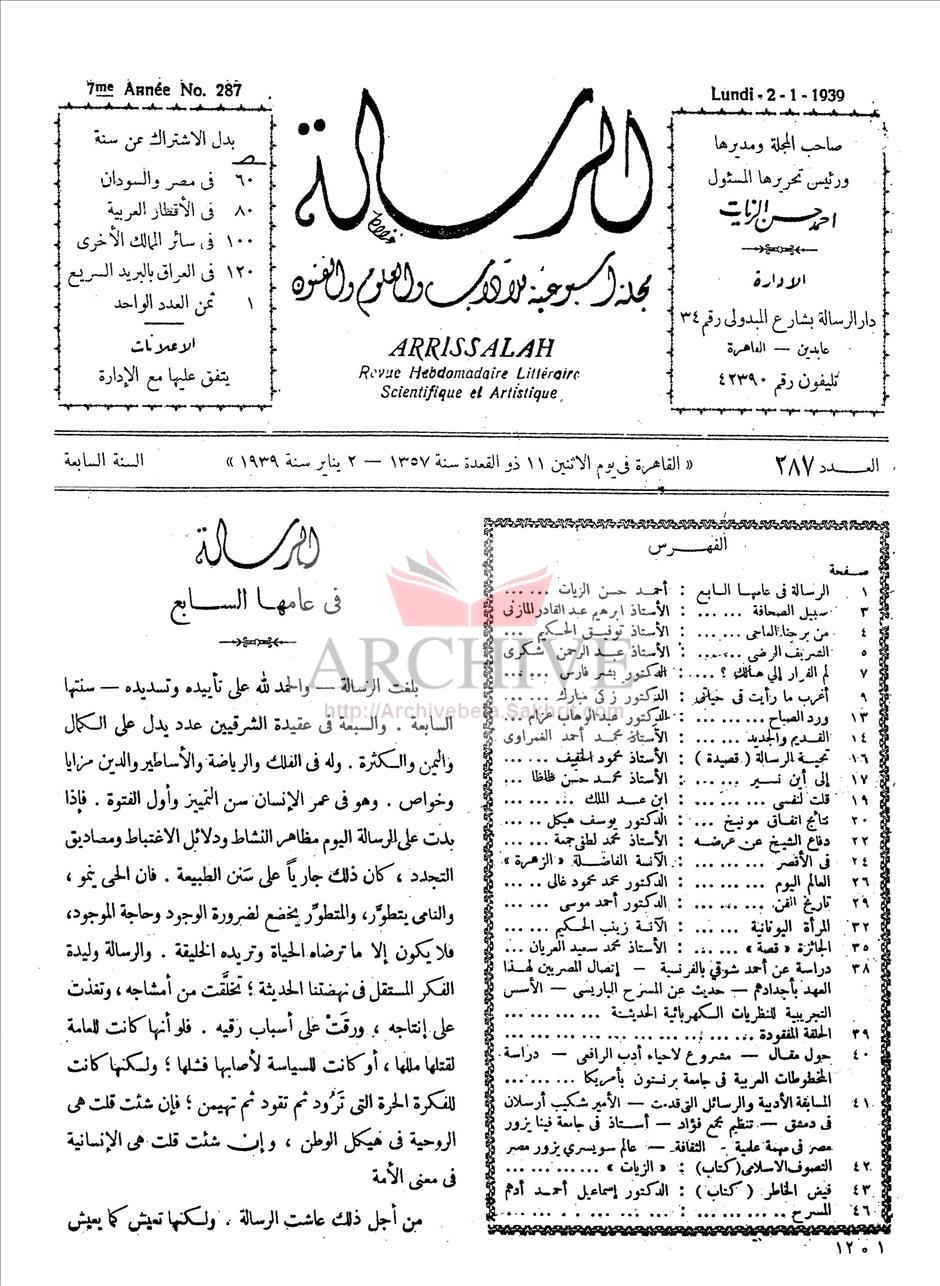 7me Année No. 287
Lundi - 2 - 1 - 1939
صاحب المجلة ومديرها
ورئيس تحريرها المسئول
احمد حسن الزيات
الادارة
دار الرسالة بشارع المبدولى رقم ٣٤
عابدين — القاهرة
تليفون رقم ٤٢٣٩٠
الرسالة
مجلة أسبوعية للآداب والعلوم والفنون
ARRISSALAH
Revue Hebdomadaire Littéraire
Scientifique et Artistique
بدل الاشتراك عن سنة
٦٠ فى مصر والسودان
٨٠ فى الأقطار العربية
١٠٠ فى سائر الممالك الأخرى
١٢٠ فى العراق بالبريد السريع
١ ثمن العدد الواحد
الاعلانات
يتفق عليها مع الإدارة
العـدد ٢٨٧
« القاهرة فى يوم الاثنين ١١ ذو القعدة سنة ١٣٥٧ — ٢ يناير سنة ١٩٣٩ »
السنة السابعة
الفهرس
صفحة
١ الرسالة فى عامها السابع : أحمد حسن الزيات ... ...
٣ سبيل الصحافة ... ... : الأستاذ ابرهيم عبد القادر المازنى
٤ من برجنا العاجى ... ... : الأستاذ توفيق الحكيم ... ...
٥ الشريف الرضى ... ... : الأستاذ عبد الرحمن شكرى
٧ لم الفرار إلى هنالك ؟ ... : الدكتور بشر فارس ... ...
٩ أغرب ما رأيت فى حياتى : الدكتور زكى مبارك ... ...
١٣ ورد الصباح ... ... ... : الدكتور عبد الوهاب عزام ...
١٤ القديم والجديد ... ... : الأستاذ محمد أحمد الغمراوى
١٦ تحية الرسالة ( قصيدة ) : الأستاذ محمود الخفيف ... ...
١٧ إلى أين نسير ... ... : الأستاذ محمد حسن ظاظا ...
١٩ قلت لنفسى ... ... ... : ابن عبد الملك ... ... ...
٢٠ نتائج اتفاق مونيخ ... : الدكتور يوسف هيكل ... ...
٢٢ دفاع الشيخ عن عرضه : الأستاذ محمد لطفى جمعة ...
٢٤ فى الأقصر ... ... ... : الآنسة الفاضلة « الزهرة »
٢٦ العالم اليوم ... ... ... : الدكتور محمد محمود غالى ...
٢٩ تاريخ الفن ... ... ... : الدكتور أحمد موسى ... ...
٣٢ المرأة اليونانية ... ... : الآنسة زينب الحكيم ... ...
٣٥ الجائزة « قصة » ... ... : الأستاذ محمد سعيد العريان ...
٣٨ دراسة عن أحمد شوقى بالفرنسية — إتصال المصريين لهذا
العهد بأجدادهم — حديث عن المسرح الباريسى — الأسس
التجريبية للنظريات الكهربائية الحديثة ... ... ... ...
٣٩ الحلقة المفقودة ... ... ... ... ... ... ...
٤٠ حول مقال — مشروع لاحياء أدب الرافعى — دراسة
المخطوطات العربية فى جامعة برنستون بأمريكا ... ... ...
٤١ المسابقة الأدبية والرسائل التى قدمت — الأمير شكيب أرسلان
فى دمشق — تنظيم مجمع فؤاد — أستاذ فى جامعة فينا يزور
مصر فى مهمة علمية - الثقافة — عالم سويسرى يزور مصر
٤٢ التصوف الاسلامى (كتاب) : « الزيات » ... ... ... ...
٤٣ فيض الخاطر ( كتاب ) : الدكتور إسماعيل أحمد أدهم
٤٦ المسرح ... ... ... ... ... ... ... ...
الرسالة
فى عامها السابع
بلغت الرسالة — والحمد لله على تأييده وتسديده — سنتها
السابعة . والسبعة فى عقيدة الشرقيين عدد يدل على الكمال
واليمن والكثرة . وله فى الفلك والرياضة والأساطير والدين مزايا
وخواص . وهو فى عمر الإنسان سن التمييز وأول الفتوة . فإذا
بدت على الرسالة اليوم مظاهر النشاط ودلائل الاغتباط ومصاديق
التجدد ، كان ذلك جارياً على سَنن الطبيعة . فان الحى ينمو ،
والنامى يتطوَّر، والمتطوِّر يخضع لضرورة الوجود وحاجة الموجود،
فلا يكون إلا ما ترضاه الحياة وتريده الخليقة . والرسالة وليدة
الفكر المستقل فى نهضتنا الحديثة ؛ تخلَّقت من أمشاجه ، وتغذت
على إنتاجه ، ورقَتْ على أسباب رقيه . فلو أنها كانت للعامة
لقتلها مللها ، أو كانت للسياسة لأصابها فشلها ؛ ولكنها كانت
للفكرة الحرة التى تَرُود ثم تقود ثم تهيمن ؛ فإن شئت قلت هى
الروحية فى هيكل الوطن ، وإن شئت قلت هى الإنسانية
فى معنى الأمة
من أجل ذلك عاشت الرسالة . ولكنها تعيش كما يعيش
ARCHIVE
http://Archivebeta.Sakhrit.com
١ ٠ ٢ ١